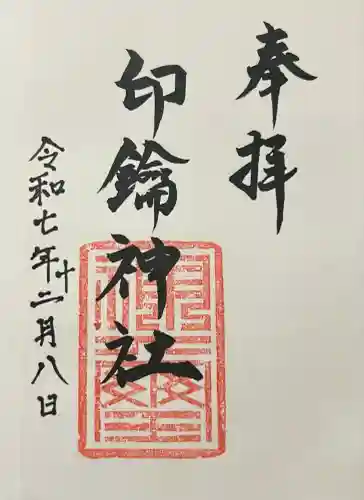 奉拝
印鑰神社
令和七年十二月八日